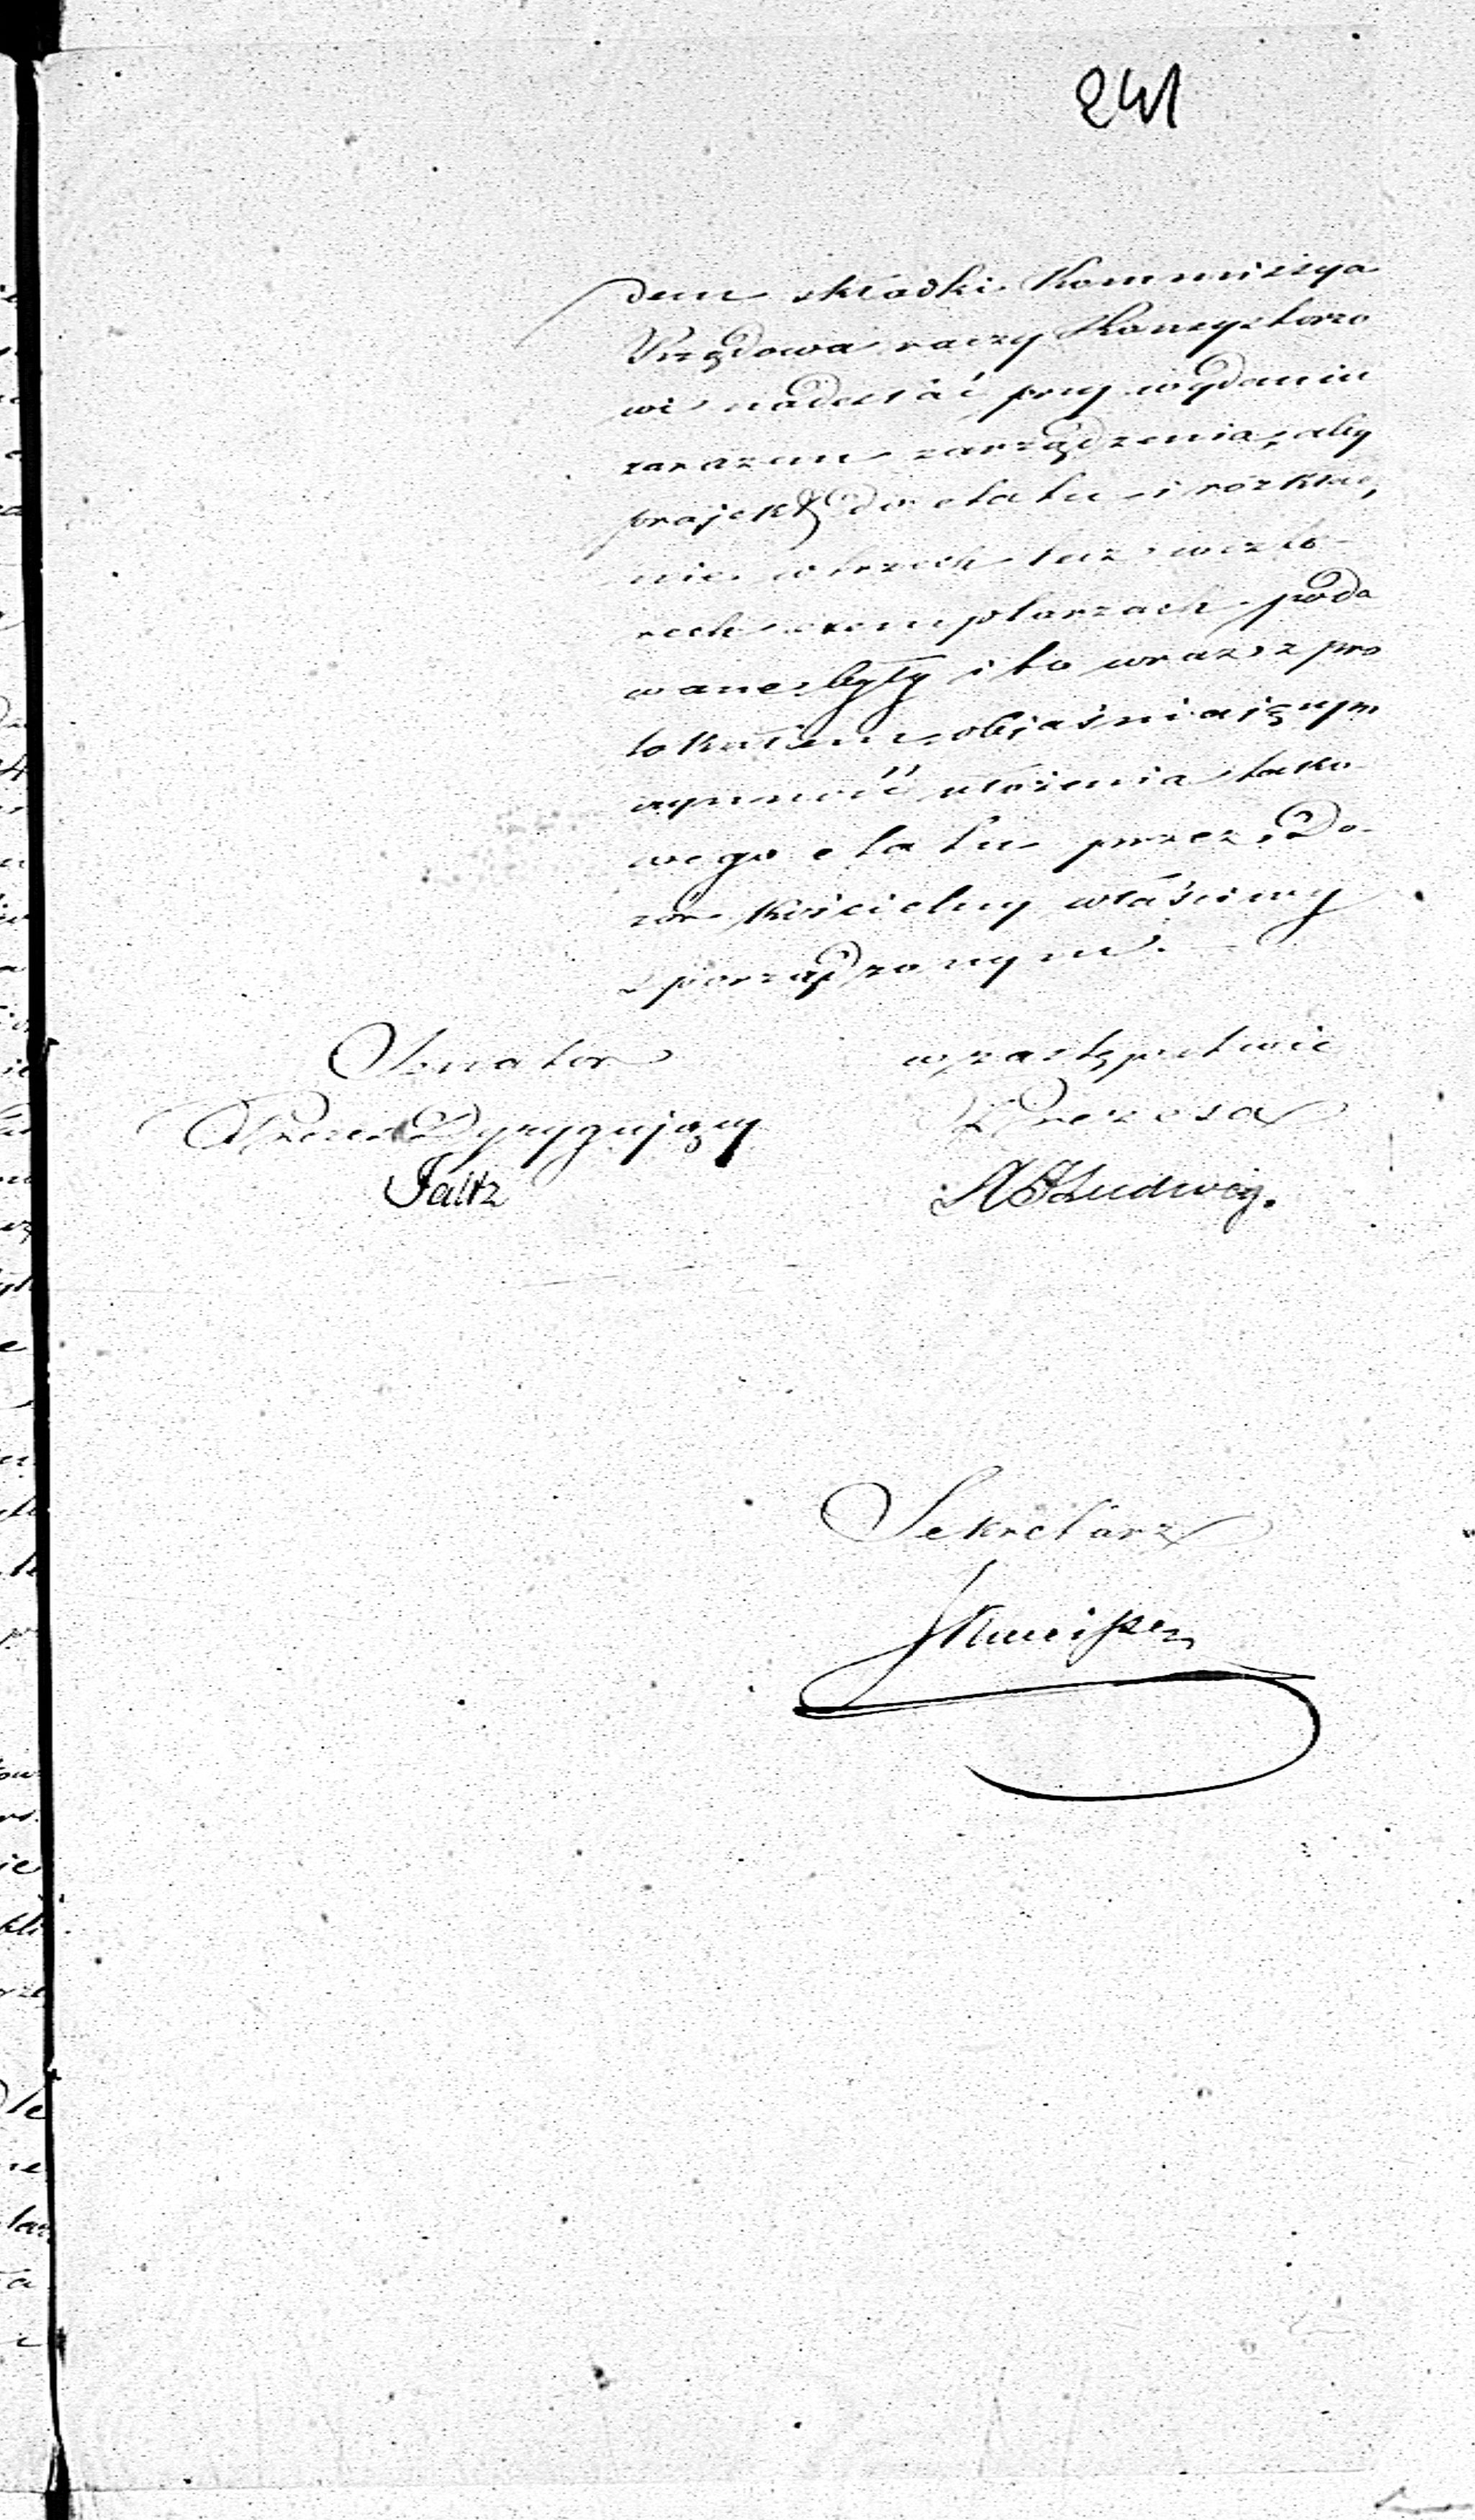 241
dem składki Kommissya
Rządowa raczy Konsystorzo
wi nadesłać przy wydaniu
zarazem zarządzenia, aby
projekt do etatu i rozkład,
nie w trzech lecz w czte-
rech exemplarzach poda
wane były i to wraz z pro
tokułem objaśniaiącym
czynność ułożenia tako
wego etatu przez Do-
zór kościelny właściwy
sporządzonym.
Senator w zastępstwie
Prezes Dyrygujący Prezesa
Faltz Ludwig.
Sekretarz